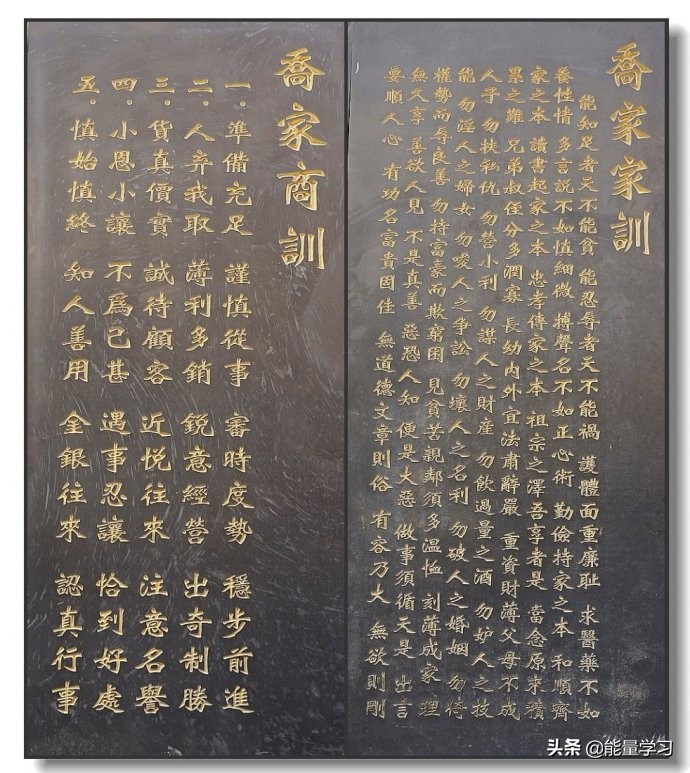 喬家家訓
能知足者天不能貧 能忍辱者天不能禍 護體面重廉耻 求醫藥不如
養性情 多言說不如慎細微 搏聲名不如正心術 勤儉持家之本 和順齊
家之本 讀書起家之本 忠孝傳家之本 祖宗之澤吾享者是 當念原來積
累之難 兄弟叔侄分多潤寡 長幼内外宜法肅辭嚴 重資財薄父母不成
人子 勿挾私仇 勿營小利 勿謀人之財産 勿飲過量之酒 勿妒人之技
能 勿淫人之婦女 勿唆人之争訟 勿壞人之名利 勿破人之婚姻 勿倚
權勢而辱良善 勿持富豪而欺窮困 見貧苦親鄰須多溫恤 刻薄成家 理
無久享 善欲人見 不是真善 惡恐人知 便是大惡 做事須循天是 出言
要順人心 有功名富貴固佳 無道德文章則俗 有容乃大 無欲則剛
喬家商訓
一。準備充足 謹慎從事 審時度勢 穩步前進
二。人弃我取 薄利多銷 鋭意經營 出奇制勝
三。貨真價實 誠待顧客 近悦往來 注意名譽
四。小恩小讓 不爲己甚 遇事忍讓 恰到好處
五。慎始慎終 知人善用 金銀往來 認真行事
头条 @能量学习